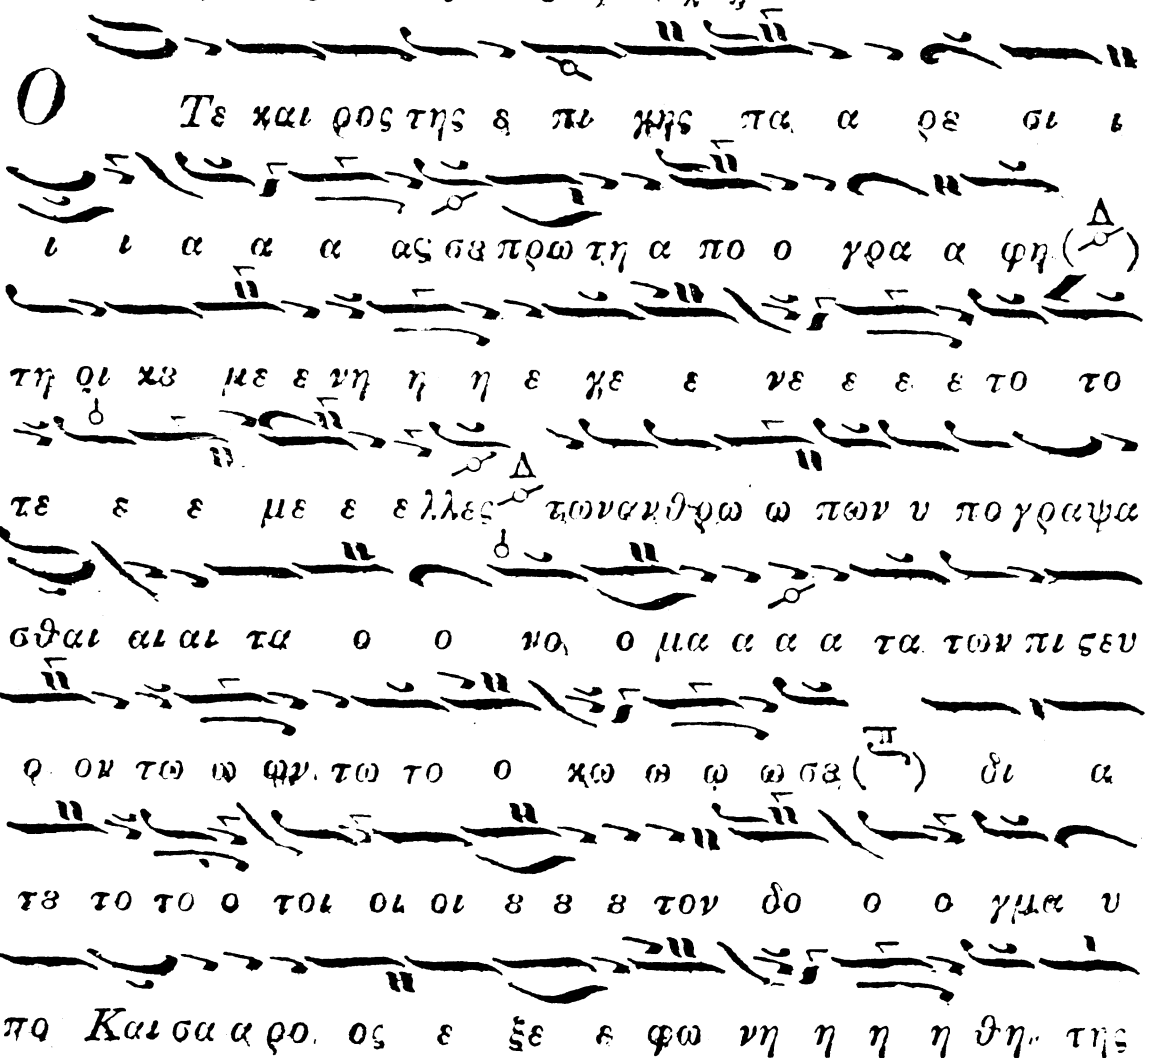 Ο Τε και ρος της ȣ πι γης πα α ρε σι ι
ι ι α α α ας σȣ πρω τη α πο ο γρα α φη (Δ)
τη οι κȣ με ε νη η η ε γε ε νε ε ε ε το το
τε ε ε με ε ε λλες Δ των αν θρω ω πων υ πο γρα ψα
σθαι αι αι τα ο ο νο ο μα α α α τα των πι ςευ
ο ον τω ω ων τω το ο κω ω ω ω σȣ (π) δι α
τȣ το το ο τοι οι οι ȣ ȣ ȣ τον δο ο ο γμα υ
πο Και σα α ρο ος ε ξε ε φω νη η η η θη της